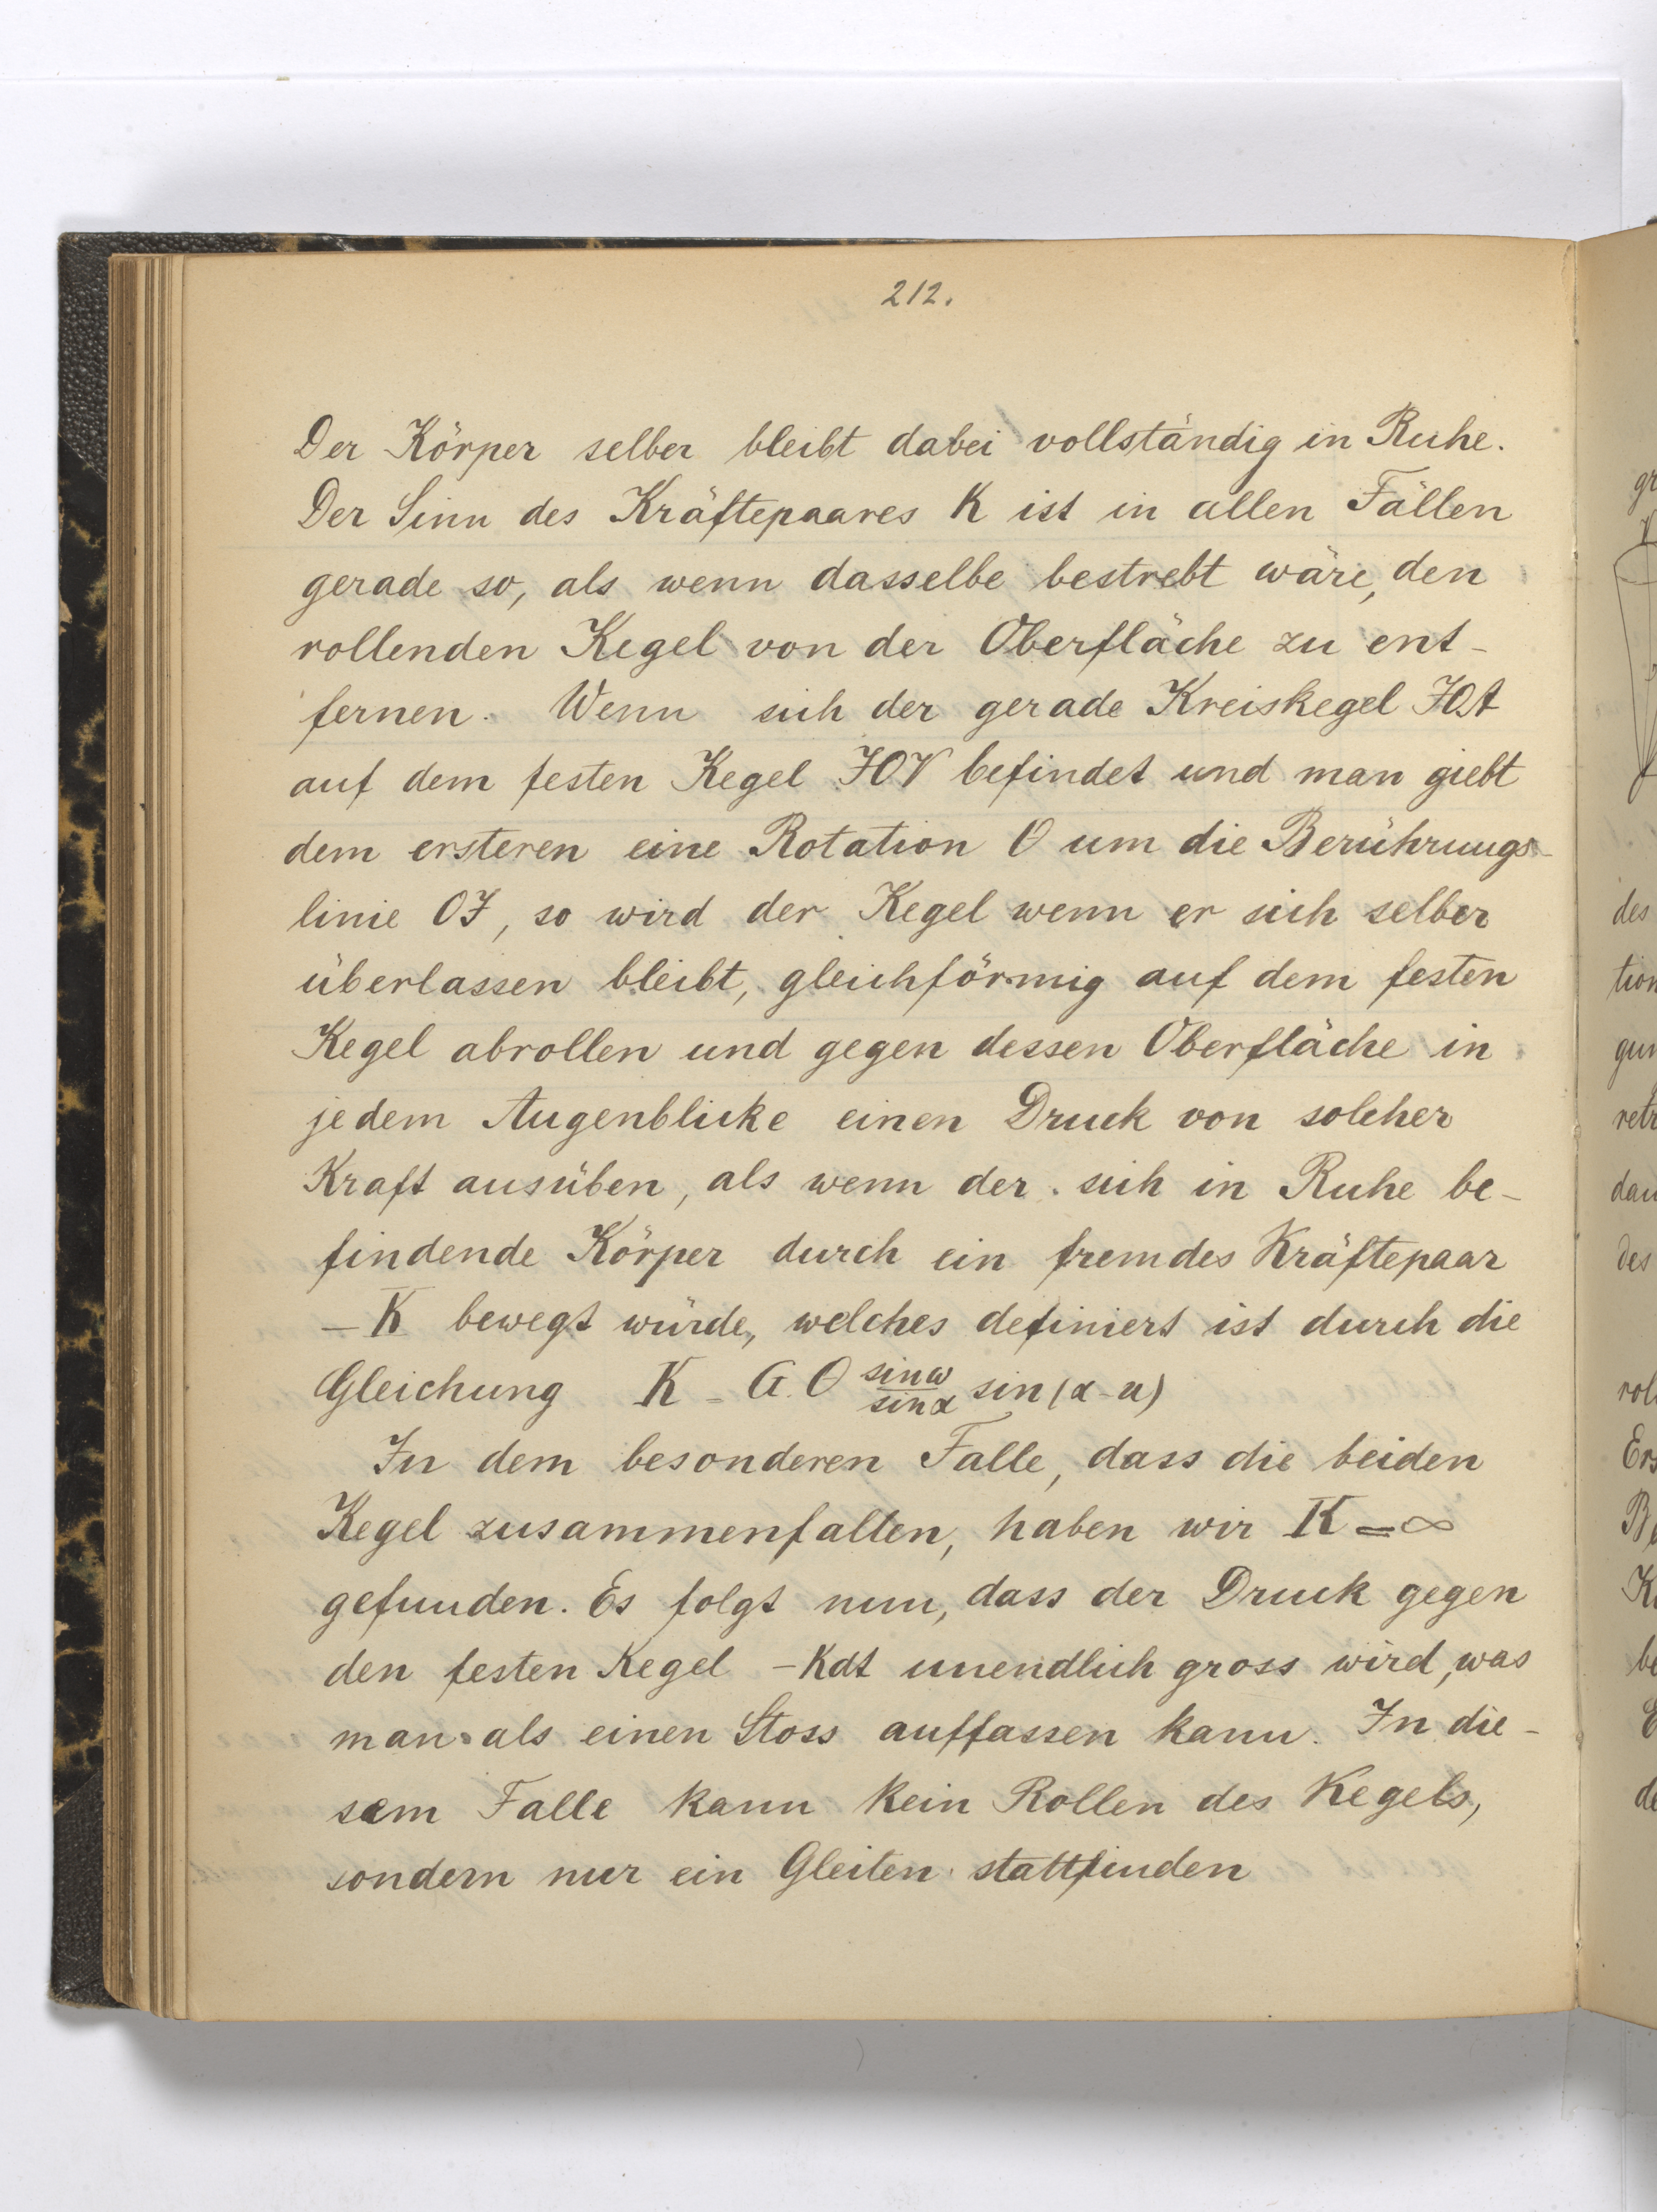 212.
Der Körper selber bleibt dabei vollständig in Ruhe.
Der Sinn des Kräftepaares K ist in allen Fällen
gerade so, als wenn dasselbe bestrebt wäre, den
rollenden Kegel von der Oberfläche zu ent-
fernen. Wenn sich der gerade Kreiskegel JOA
auf dem festen Kegel JOV befindet und man giebt
dem ersteren eine Rotation O um die Berührungs-
linie OJ, so wird der Kegel wenn er sich selber
überlassen bleibt, gleichförmig auf dem festen
Kegel abrollen und gegen dessen Oberfläche in
jedem Augenblicke einen Druck von solcher
Kraft ausüben, als wenn der sich in Ruhe be-
findende Körper durch ein fremdes Kräftepaar
-K bewegt würde, welches definiert ist durch die
Gleichung K = G.O sinω/sinα sin(α-u)
In dem besonderen Falle, dass die beiden
Kegel zusammenfalten, haben wir K=∞
gefunden. Es folgt nun, dass der Druck gegen
den festen Kegel -Kdt unendlich gross wird, was
man als einen Stoss auffassen kann. In die-
sem Falle kann kein Rollen des Kegels,
sondern nur ein Gleiten stattfinden
gr
des
tion
gun
retr
dau
des
rol
Ers
be